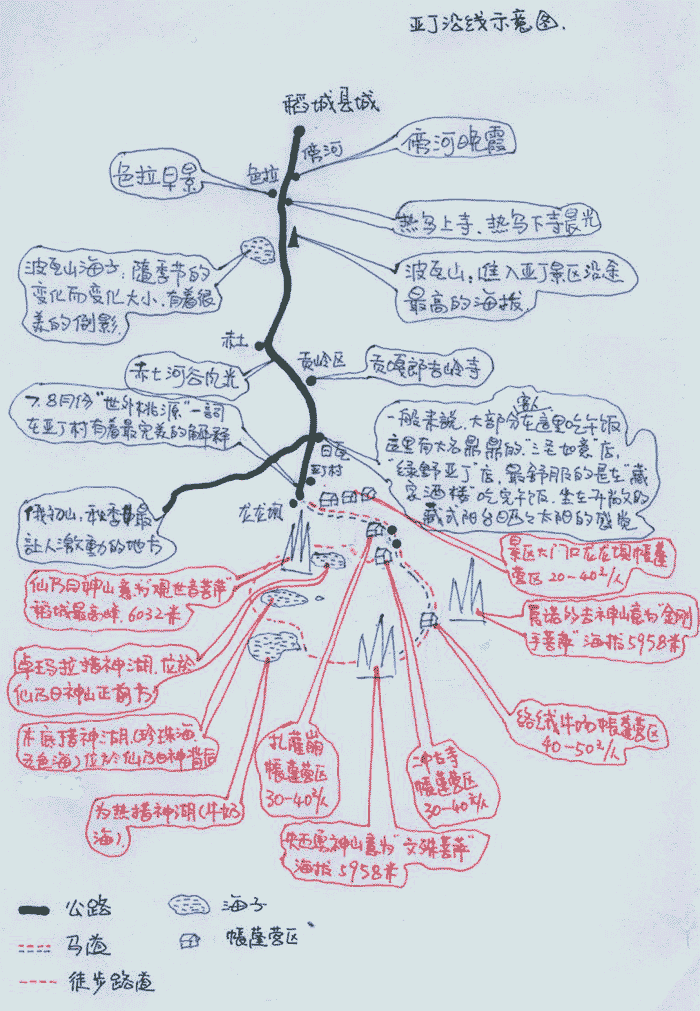 亚丁沿线示意图.
稻城县城
傍河
傍河晚霞
色拉早景
色拉
热乌上寺、热乌下寺晨光
波瓦山海子:随季节的
变化而变化大小.有着很
美的倒影.
波瓦山:进入亚丁景区沿途
最高的海拔.
赤土
贡岭区
贡嘎郎吉岭寺
赤土河谷风光
7、8月份"世外桃源"一詞
在亚丁村有着最完美的解释
客人
一般来説.大部分在這里吃午饭
這里有大名鼎鼎的."三毛如意"店,
绿野亚丁店,最舒服的是在"藏
家酒楼"吃完午饭.坐在开放的
藏式阳台晒太阳的感觉
日瓦
亚丁村
俄初山:秋季最
让人激動的地方
龙龙坝
景区大门口龙龙坝帳蓬
營区20-40元/人
仙乃日神山意为"观世音菩萨"
稻城最高峰.6032米
夏诺多吉神山意为"金刚
手菩萨"海拔5958米
卓玛拉措神湖.位於
仙乃日神山正前方
络绒牛场帳蓬营区
40-50元/人
木底措神湖(珍珠海
五色海)位於仙乃日神背后
扎薩崩
帳蓬营区
30-40元/人
冲古寺
帳蓬营区
30-40元/人
为热措神湖(牛奶
海).
央迈勇神山意为"文殊菩萨"
海拔5958米
公路
海子
马道
帳蓬营区
徒步路道